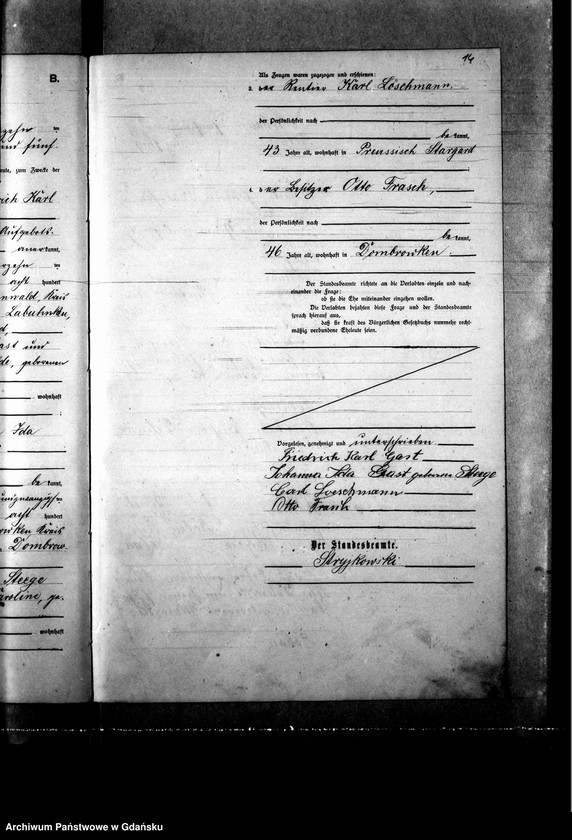 B.
zehn
und fünf
heute, zum Zwecke der
rich Karl
Aufgebots-
anerkannt,
acht hundert
nwald Kreis
Labuhnken,
ast und
geborenen
wohnhaft
Ida
be kannt,
acht hundert
wken Kreis
Dombrow-
Steege
aroline, ge-
wohnhaft
14
Als Zeugen waren zugezogen und erschienen:
3. der Rentier Karl Löschmann
der Persönlichkeit nach
be kannt,
43 Jahre alt, wohnhaft in Preussisch Stargard
4. der Besitzer Otto Frasch,
der Persönlichkeit nach
be kannt,
46 Jahre alt, wohnhaft in Dombrowken.
Der Standesbeamte richtete an die Verlobten einzeln und nach-
einander die Frage:
ob sie die Ehe miteinander eingehen wollen.
Die Verlobten bejahten diese Frage und der Standesbeamte
sprach hierauf aus,
daß sie kraft des Bürgerlichen Gesetzbuchs nunmehr recht-
mäßig verbundene Eheleute seien.
Vorgelesen, genehmigt und unterschrieben
Friedrich Karl Gast
Johanna Ida Gast geborene Steege
Carl Loeschmann
Otto Frasch
Der Standesbeamte.
Stryjkowski
Archiwum Państwowe w Gdańsku